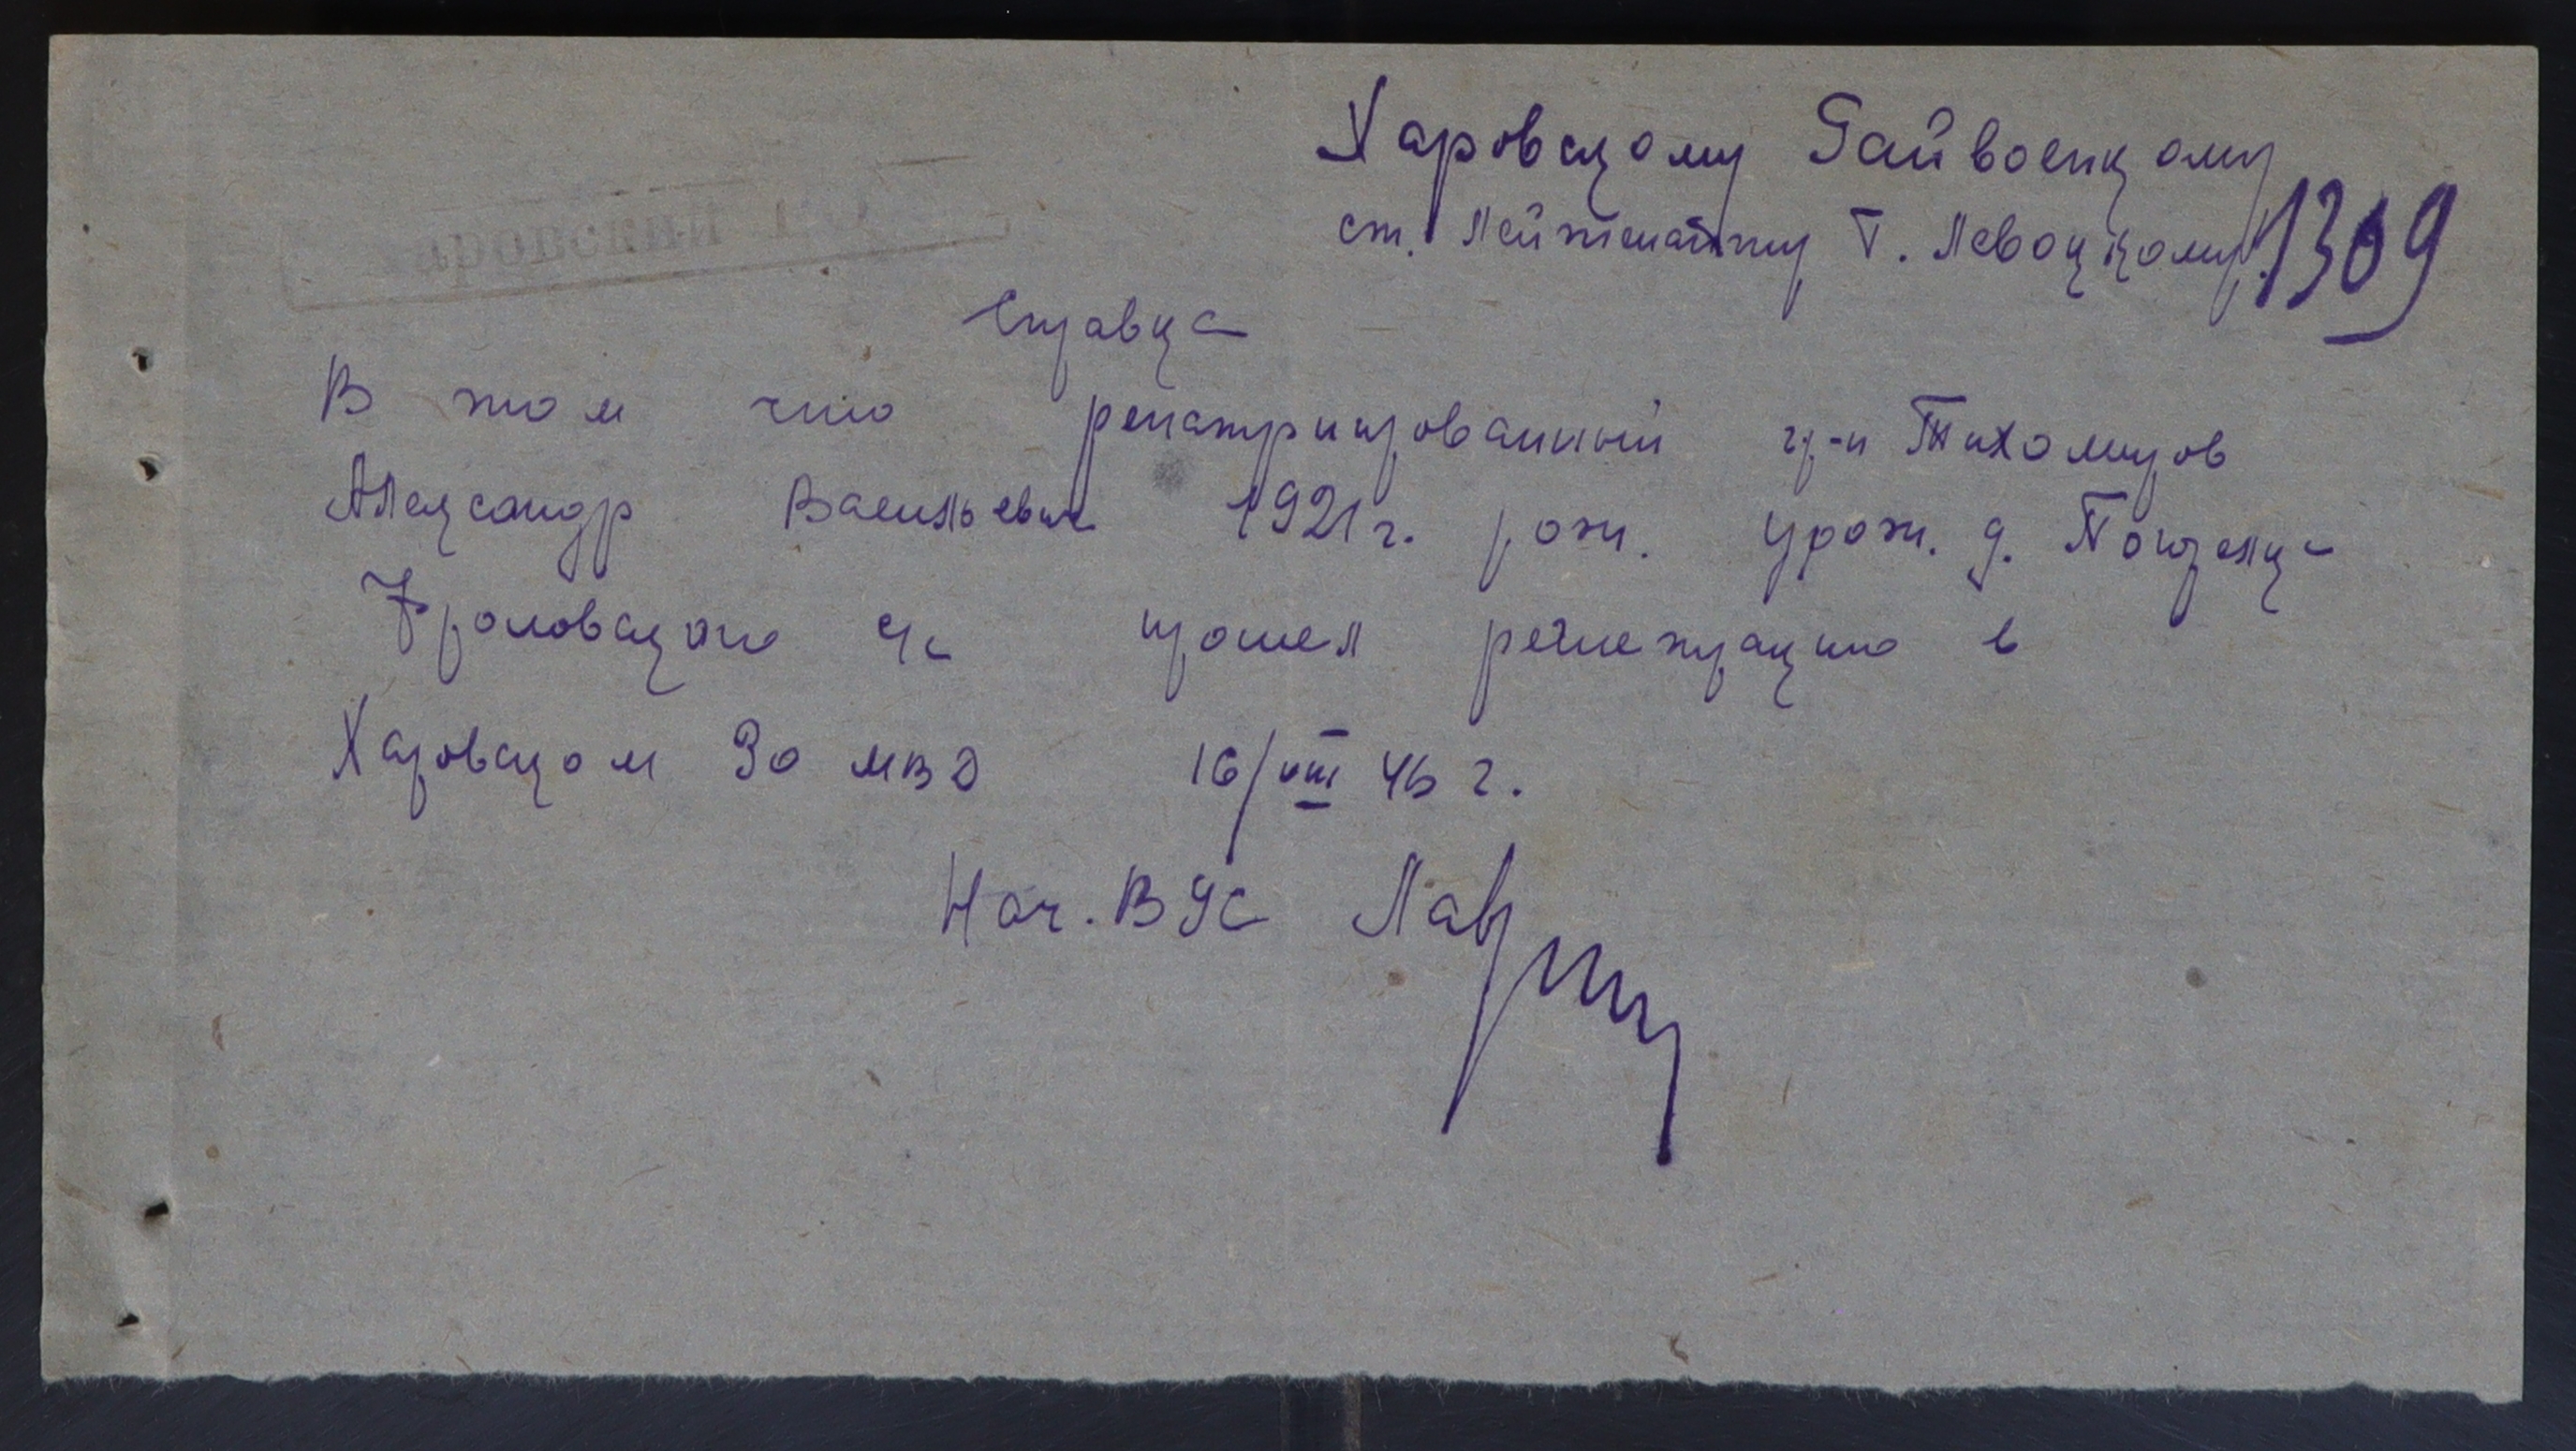 Харовскому Райвоенкому
ст. Лейтенанту т. Левоцкому.
1309
Харовский
Справка
В том что репатриированный гр-н Тихомиров
Александр Васильевич 1921 г. рож. урож. д.
Фроловского с/с прошел регистрацию в
Харовском РО МВД 16/VIII 46 г.
Нач. ВУС